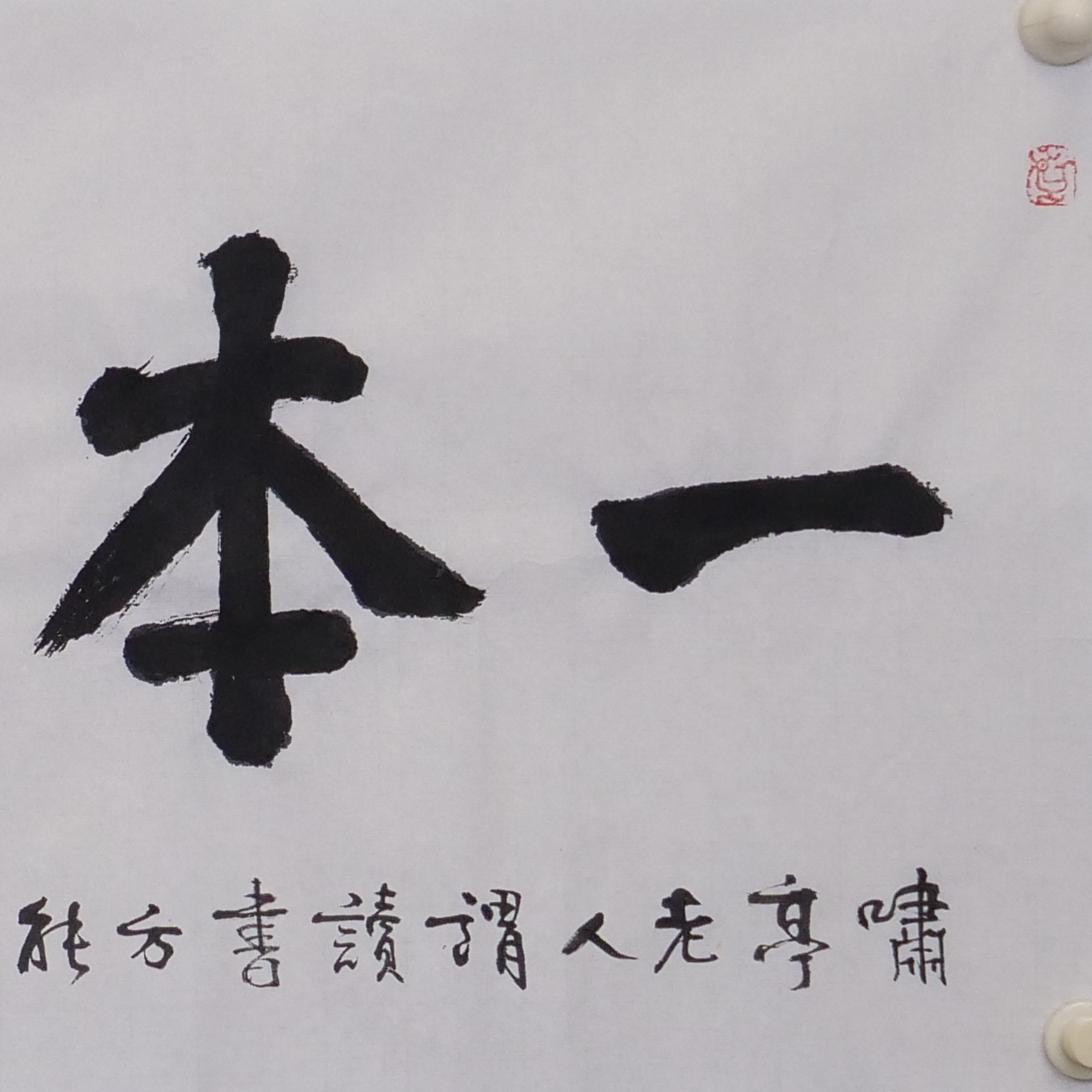 一本
嘯亭老人謂讀書方能